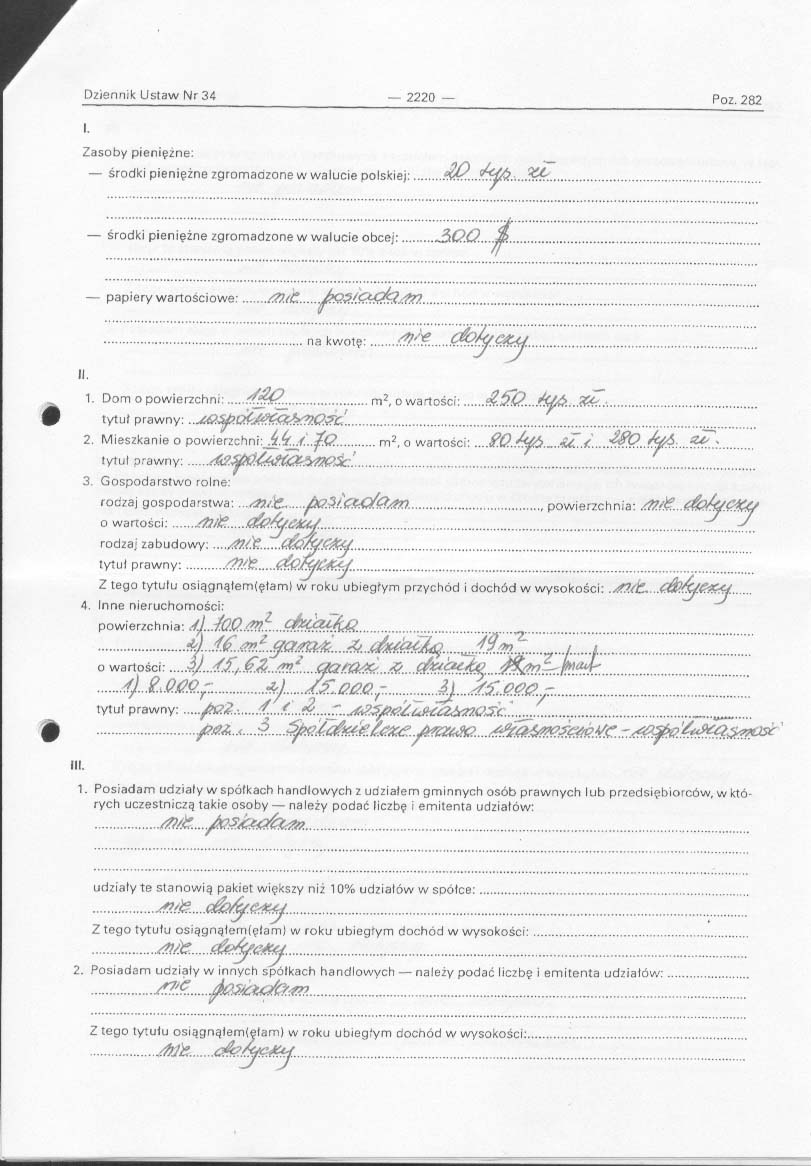 Dziennik Ustaw Nr 34 — 2220 — Poz. 282
I.
Zasoby pieniężne:
— środki pieniężne zgromadzone w walucie polskiej: 20 tyś. zł
— środki pieniężne zgromadzone w walucie obcej: 300 $
— papiery wartościowe: nie posiadam
na kwotę: nie dotyczy
II.
1. Dom o powierzchni: 120 m², o wartości: 250 tyś zł.
tytuł prawny: współwłasność
2. Mieszkanie o powierzchni: 44 i 70 m², o wartości: 80 tyś zł i 280 tyś. zł.
tytuł prawny: współwłasność
3. Gospodarstwo rolne:
rodzaj gospodarstwa: nie posiadam, powierzchnia: nie dotyczy
o wartości: nie dotyczy
rodzaj zabudowy: nie dotyczy
tytuł prawny: nie dotyczy
Z tego tytułu osiągnąłem(ęłam) w roku ubiegłym przychód i dochód w wysokości: nie dotyczy
4. Inne nieruchomości:
powierzchnia: 1) 700 m² działka
2) 16 m² garaż z działką 19 m²
o wartości: 3) 15,62 m² garaż z działką m²
1) 8.000,- 2) 15.000,- 3) 15.000,-
tytuł prawny: poz. 1 i 2 - współwłasność
poz. 3 Spółdzielcze prawo własnościowe - współwłasność
III.
1. Posiadam udziały w spółkach handlowych z udziałem gminnych osób prawnych lub przedsiębiorców, w któ-
rych uczestniczą takie osoby — należy podać liczbę i emitenta udziałów:
nie posiadam
udziały te stanowią pakiet większy niż 10% udziałów w spółce:
nie dotyczy
Z tego tytułu osiągnąłem(ęłam) w roku ubiegłym dochód w wysokości:
nie dotyczy
2. Posiadam udziały w innych spółkach handlowych — należy podać liczbę i emitenta udziałów:
nie posiadam
Z tego tytułu osiągnąłem(ęłam) w roku ubiegłym dochód w wysokości:
nie dotyczy